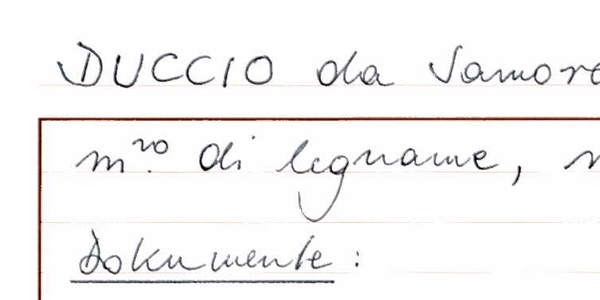 DUCCIO da
m.ro di legname,
Dokumente: